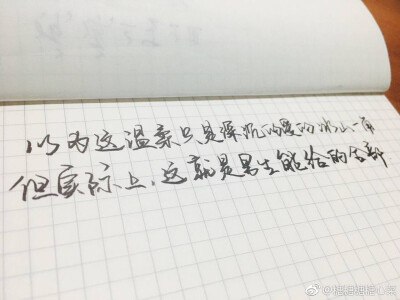 以为这温柔只是深沉的爱的冰山一角
但实际上，这就是男生能给的全部